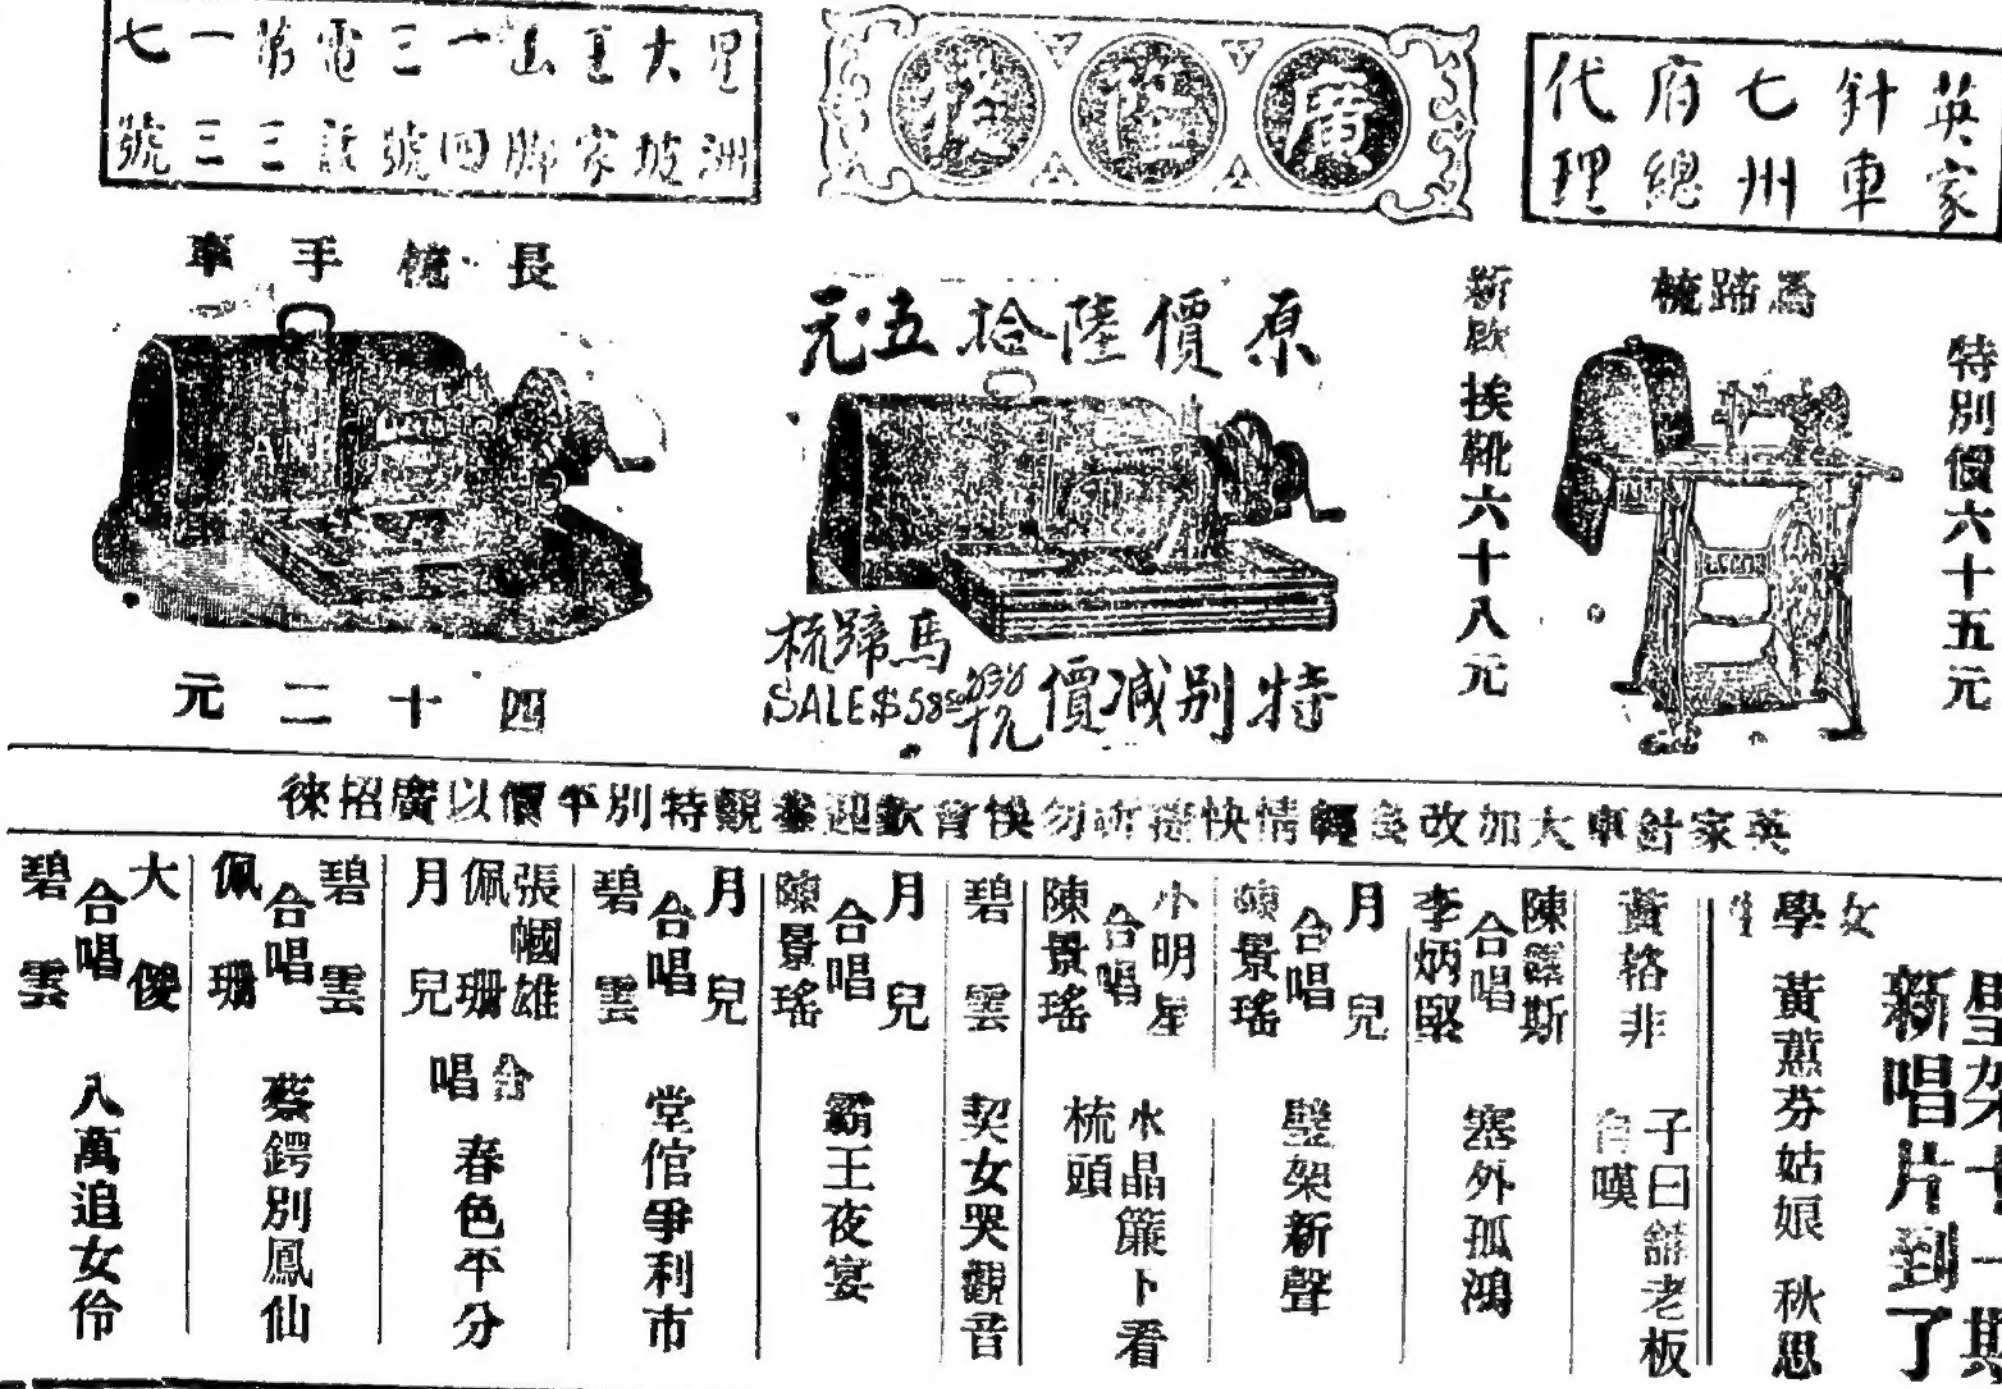 英家
針車
七州
府總
代理
廣隆俊
星洲
大坡
直家
山腳
一四
三號
電話
第三
一三
七號
馬蹄梳
特別價六十五元
新款挨靴六十八元
原價陸拾五元
馬蹄梳
SALE $58.50
特別減價
長梳手車
四十二元
英家針車大加改良輕情快捷所勿悞會歡迎參觀特別平價以廣招徠
璧架十一期
新唱片到了
女學生 黃蕙芬姑娘 秋思
黃格非 子曰舖老板自嘆
陳醒斯 李炳堅 合唱 塞外孤鴻
月兒 陳景瑤 合唱 璧架新聲
小明星 陳景瑤 合唱 水晶簾下看梳頭
碧雲 契女哭觀音
月兒 陳景瑤 合唱 霸王夜宴
月兒 碧雲 合唱 堂倌爭利市
張幗雄 佩珊 月兒 合唱 春色平分
碧雲 佩珊 合唱 蔡鍔別鳳仙
大傻 碧雲 合唱 八萬追女伶